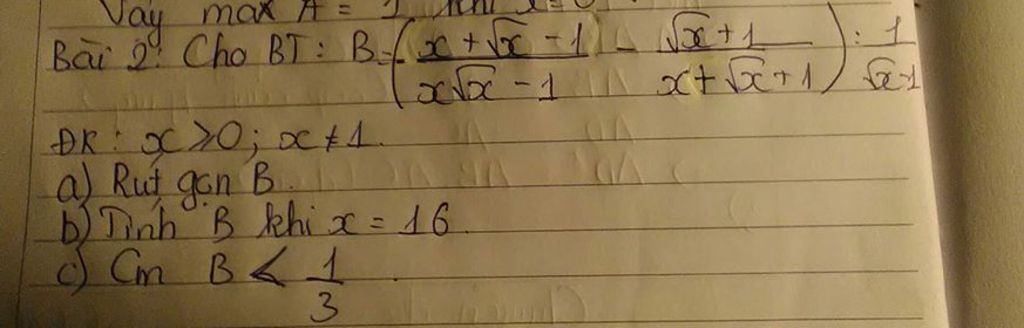 Vậy max A = 1 khi x = 0
Bài 2: Cho BT: B = (x + √x - 1 / x√x - 1 - √x + 1 / x + √x + 1) : 1 / √x - 1
ĐK: x ≥ 0; x ≠ 1.
a) Rút gọn B.
b) Tính B khi x = 16.
c) Cm B < 1/3